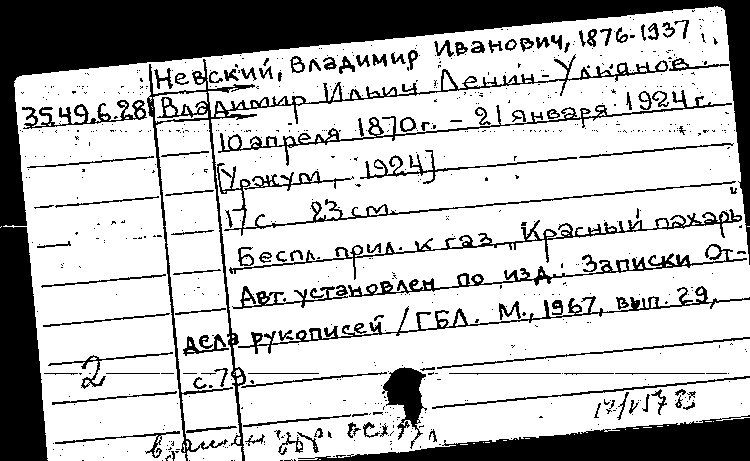 Невский, Владимир Иванович, 1876-1937
3549.6.28 Владимир Ильич Ленин-Улянов.
10 апреля 1870г. - 21 января 1924г.
[Уржум, 1924]
17с. 23 см.
„Беспл. прил. к газ. „Красный пахарь"
Авт. установлен по изд.: Записки От-
дела рукописей / ГБЛ. М., 1967, вып. 29,
2 с. 79.
взамен